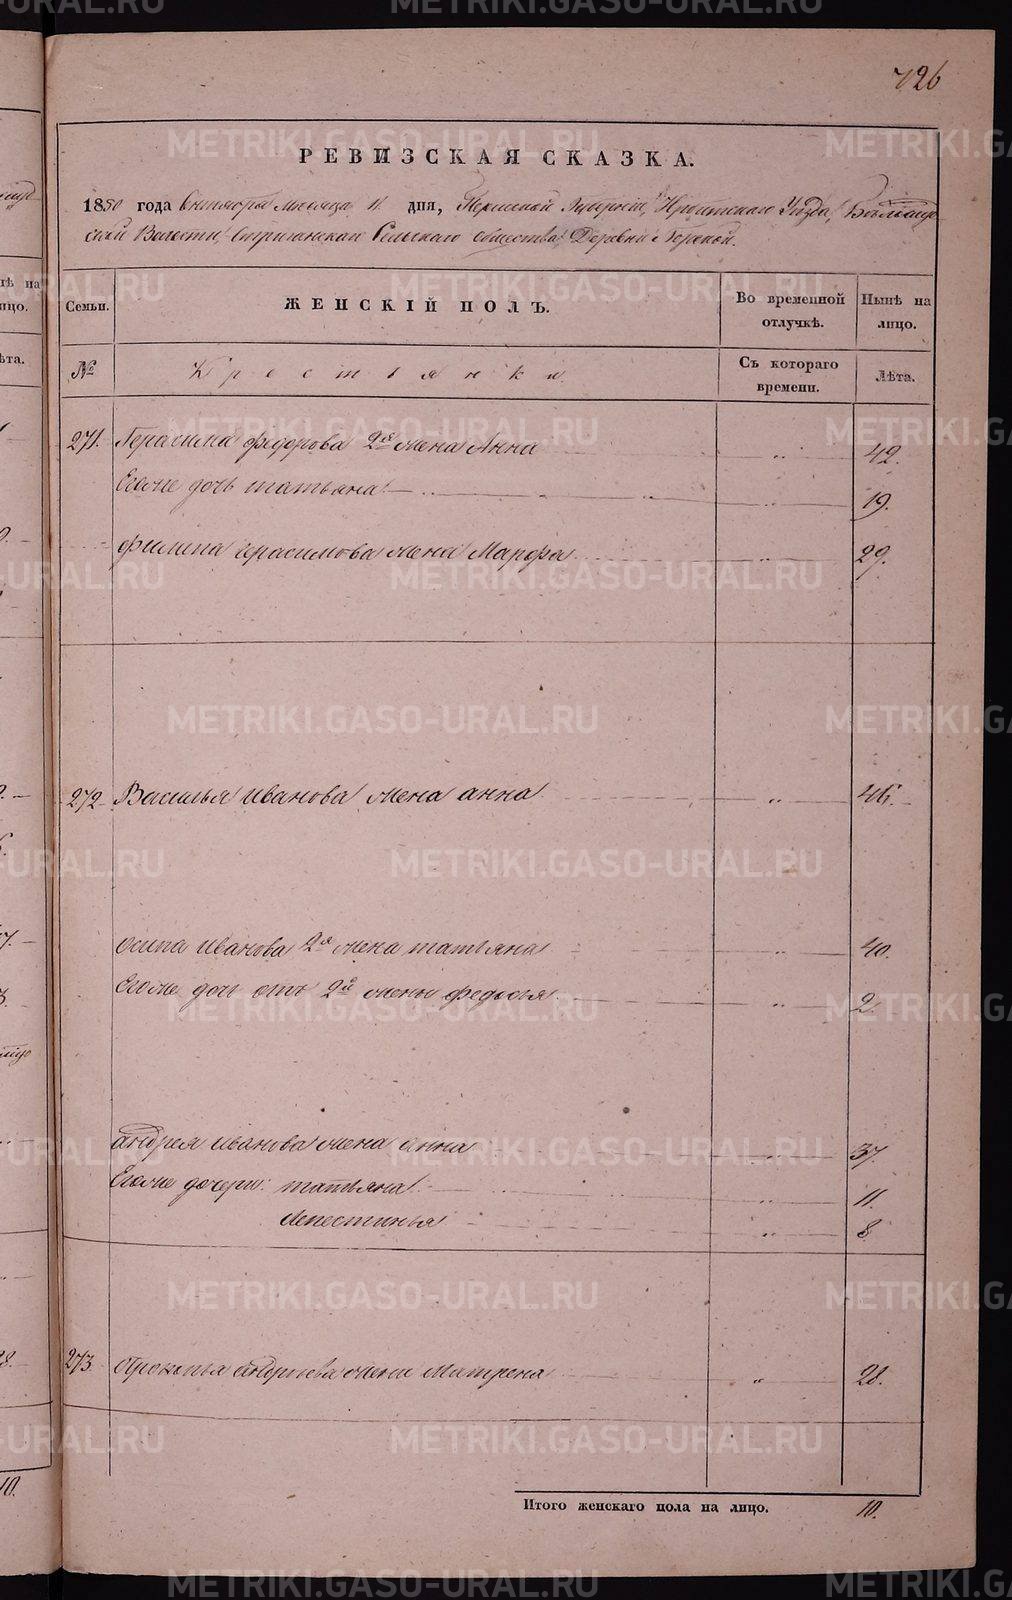 726
РЕВИЗСКАЯ СКАЗКА.
1850 года Сентября месяца 11 дня, Пермской Губернии, Ирбитскаго Уезда,
ской Волости, Стриганскаго Сельскаго общества, Деревни Горкой.
Семьи. ЖЕНСКІЙ ПОЛЪ. Во временной отлучкѣ. Нынѣ на лицо.
№ Крестьянки Съ котораго времени. Лѣта.
271. Герасима федорова 2я жена Анна " 42.
Егоже дочь татьяна " 19.
филипа герасимова жена Марфа " 29.
272 Василья иванова жена анна " 46.
осипа иванова 2я жена татьяна " 40.
Егоже дочь отъ 2й жены федосья " 2.
андрея иванова жена анна " 37.
Егоже дочери: татьяна " 11.
Апестинья " 8
273 Прокопья андреева жена Матрена " 28.
Итого женскаго пола на лицо. 10.
METRIKI.GASO-URAL.RU